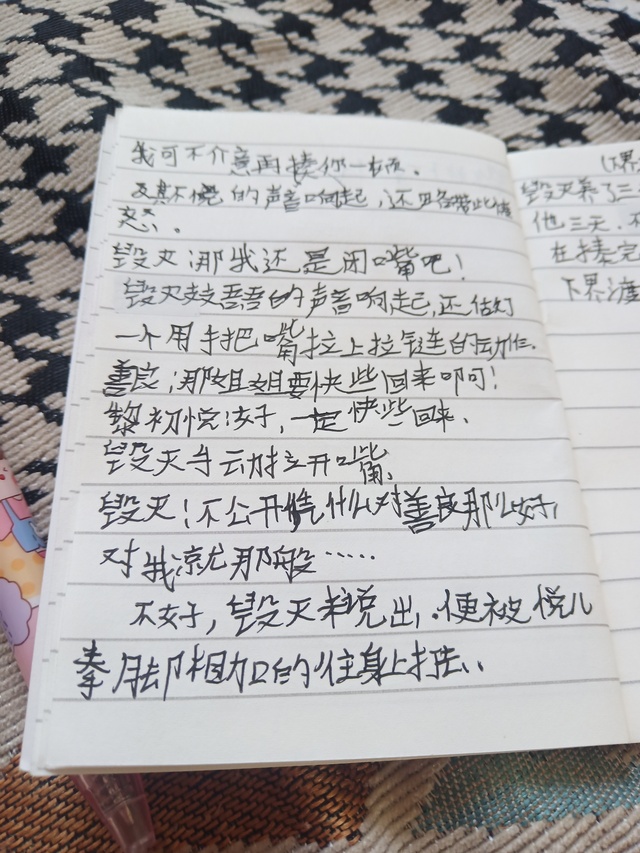 我可不介意再揍你一顿。
的声音响起,还
怒。
毁灭:那我还是闭嘴吧!
毁灭 的声音响起,还
一个用手把嘴拉上拉链的动作。
善良:那姐姐要快些回来啊!
黎初悦:好,一定快些回来。
毁灭手动拉开嘴,
毁灭:不公开,凭什么对善良那么好,
对我就那般……
不好,毁灭 说出,便被悦儿
拳脚相加的往身上打去..
(下界
毁灭养了三
他三天,
在揍完
下界渡